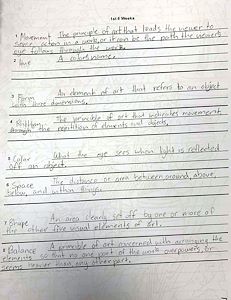 1st 6 Weeks
1 Movement The principle of art that leads the viewer to
sense action in a work, or it can be the path the viewer's
eye follows through the work.
2 Hue A colors name.
3 Form An element of art that refers to an object
with three dimensions.
4 Rhythm The principle of art that indicates movement
through the repetition of elements and objects.
5 Color What the eye sees when light is reflected
off an object.
6 Space The distance or area between, around, above,
below, and within things.
7 Shape An area clearly set off by one or more of
the other five visual elements of art.
8 Balance A principle of art concerned with arranging the
elements so that no one part of the work overpowers, or
seems heavier than any other part.